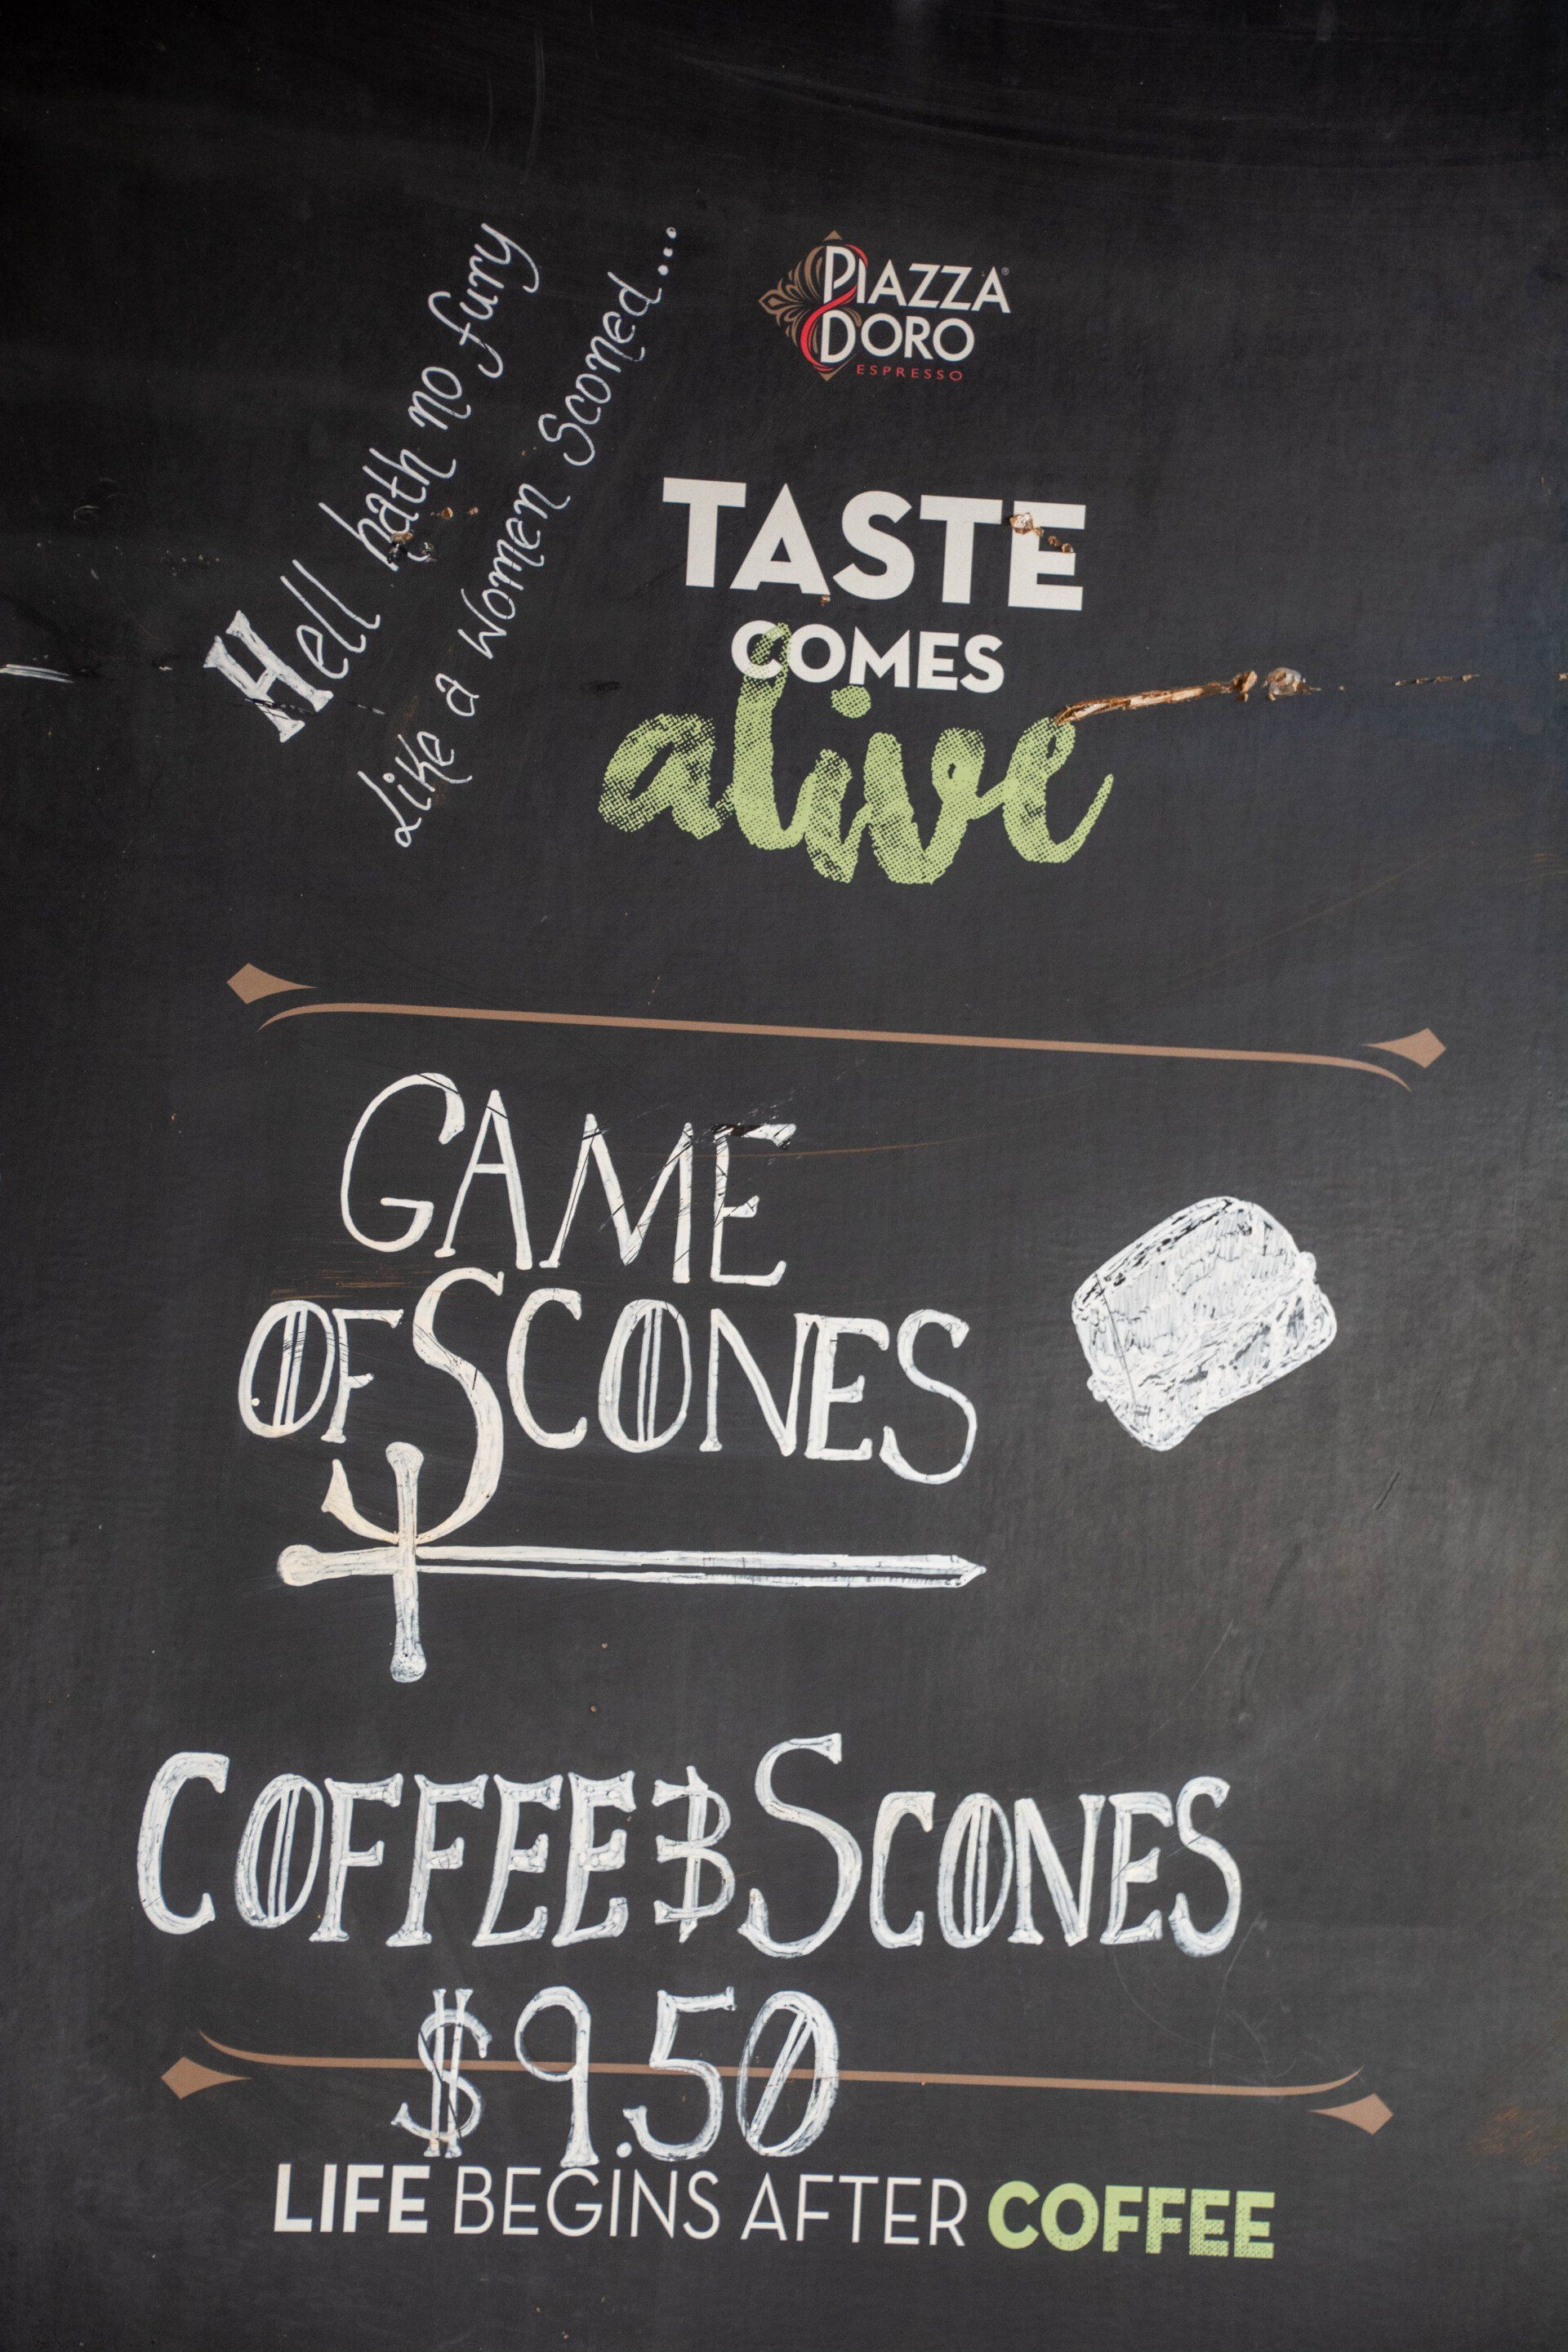 Hell hath no fury
Like a women Sconed...
PIAZZA
D'ORO
ESPRESSO
TASTE
COMES
alive
GAME
OF SCONES
COFFEE & SCONES
$9.50
LIFE BEGINS AFTER COFFEE